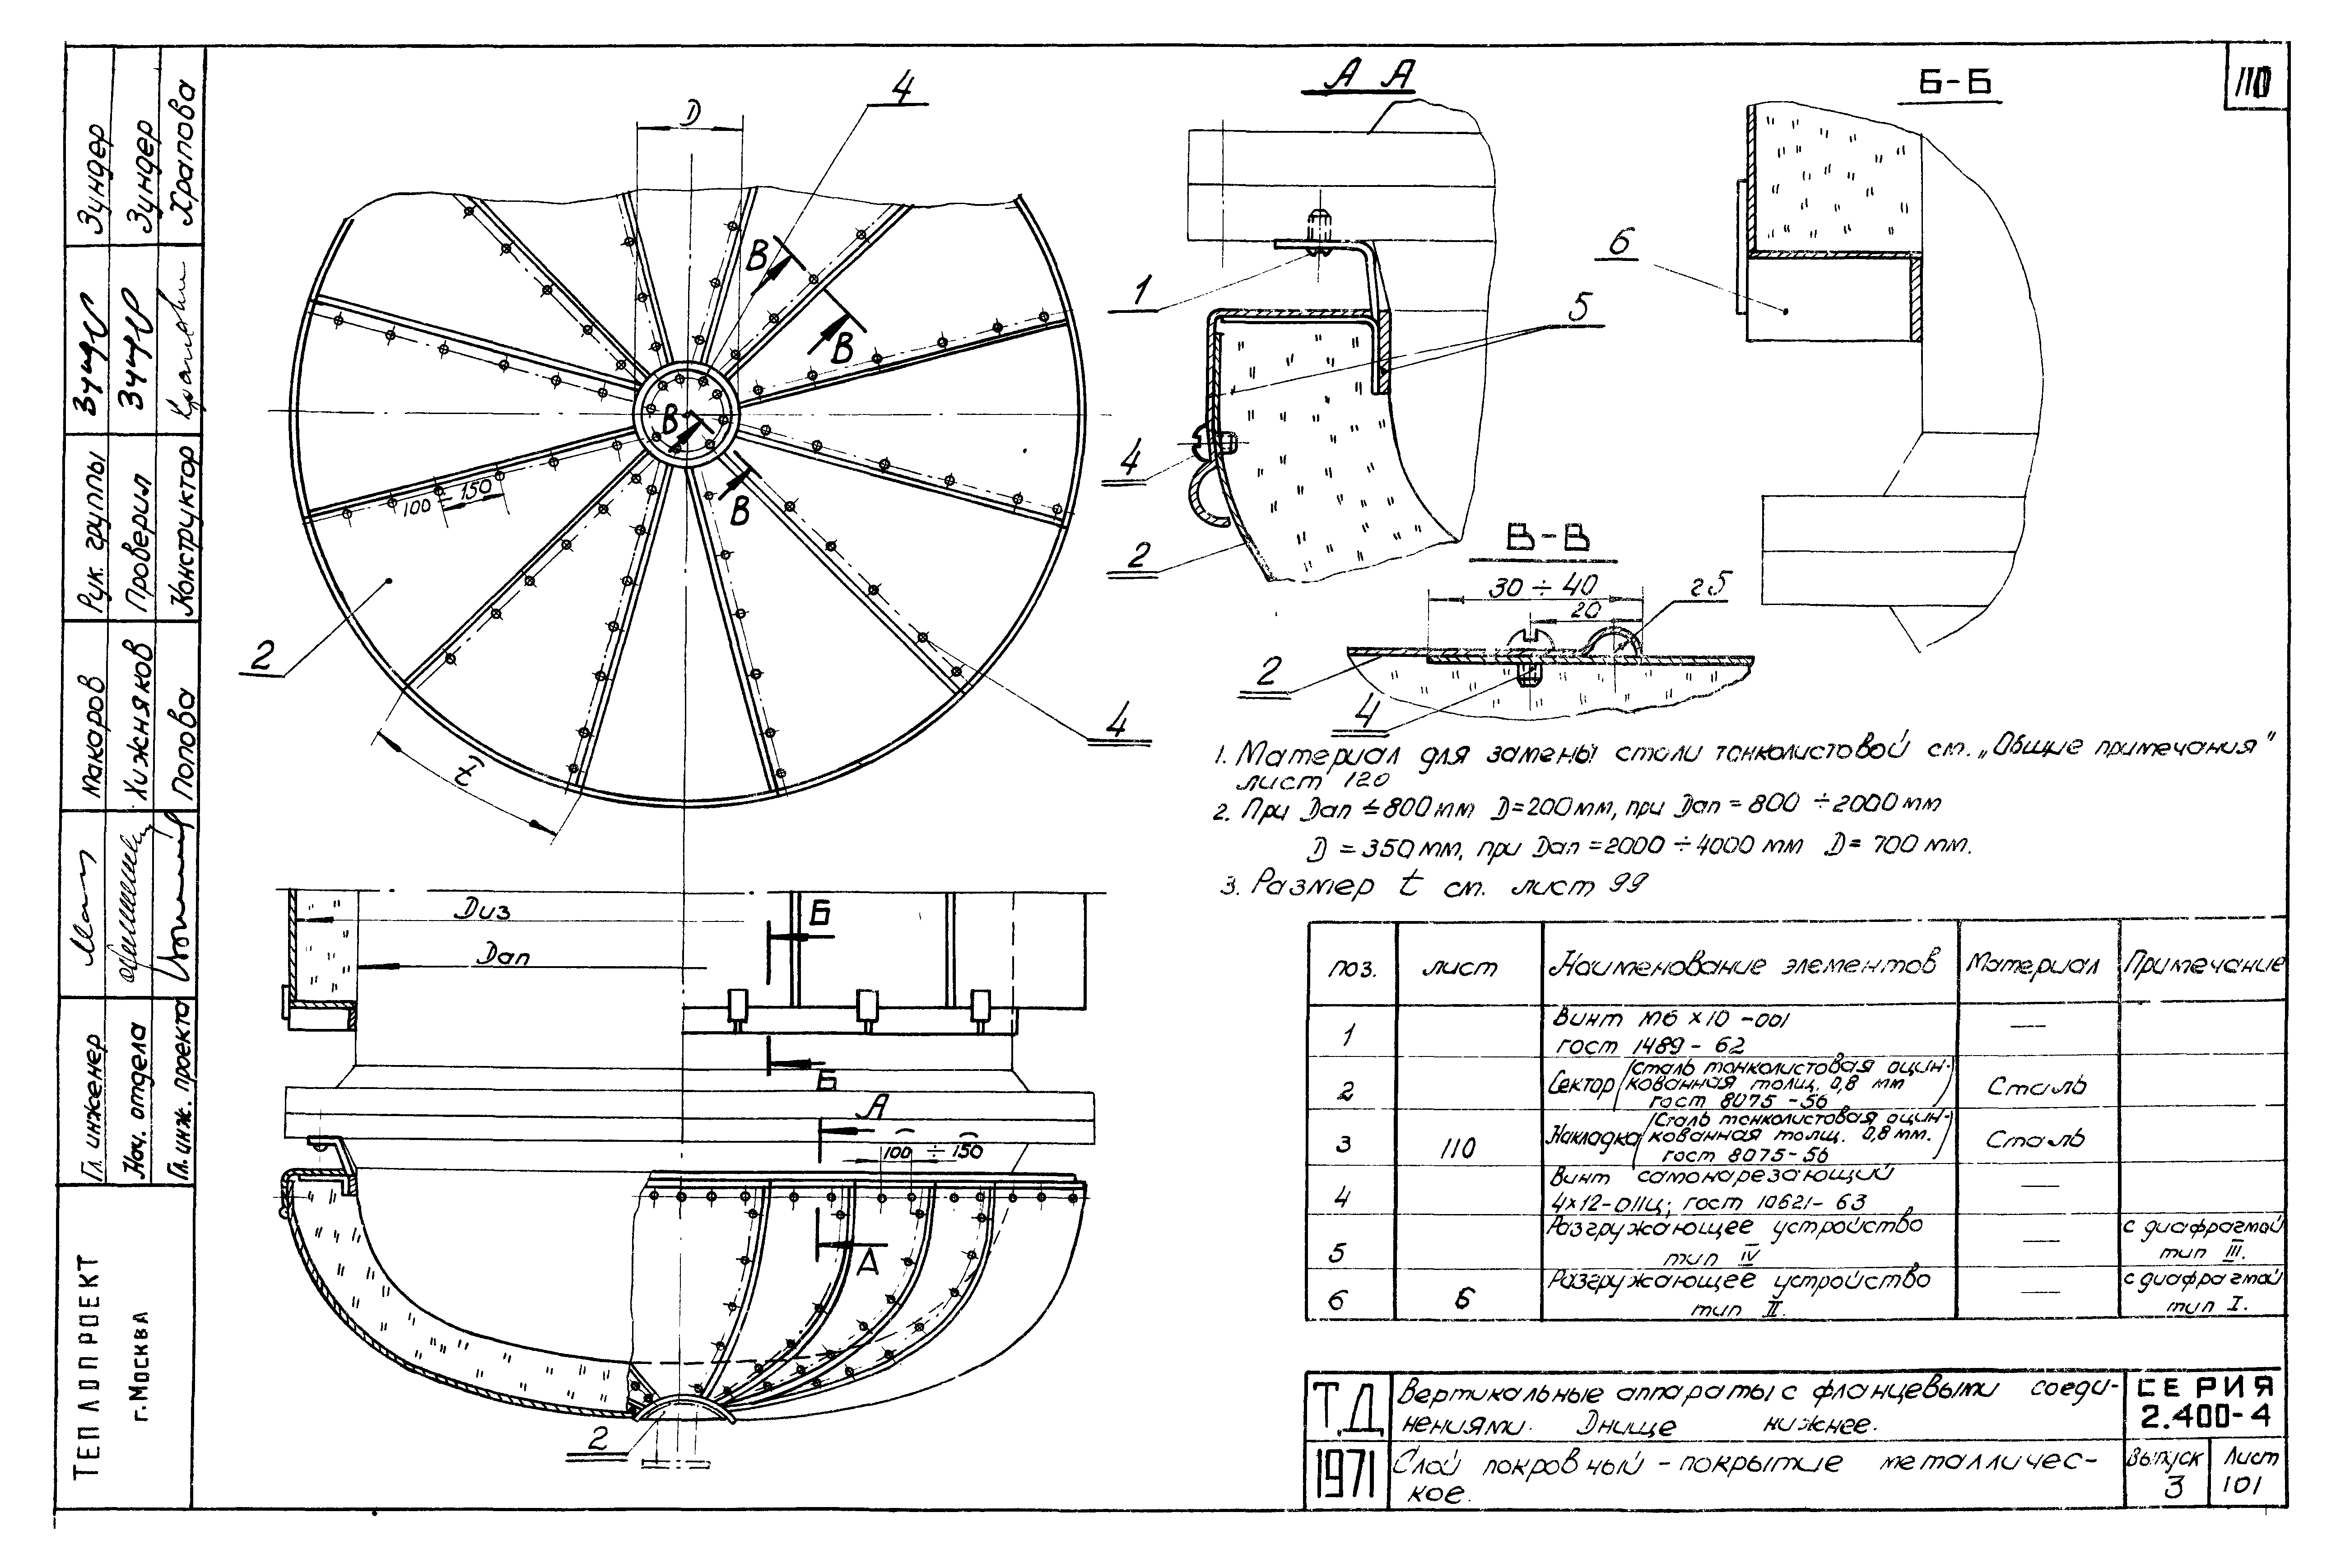 110
4
D
В
В
В
В
100 ÷ 150
2
t
4
А А
1
5
4
2
Б-Б
6
В-В
30 ÷ 40
20
г5
2
4
1. Материал для замены стали тонколистовой см. „Общие примечания"
лист 120
2. При Dап ≤ 800 мм D=200мм, при Dап = 800 ÷ 2000 мм
D = 350 мм, при Dап = 2000 ÷ 4000 мм D= 700 мм.
3. Размер t см. лист 99
Dиз
Dап
Б
Б
А
100 ÷ 150
А
2
поз. лист Наименование элементов Материал Примечание
1 Винт М6 х10 -001
гост 1489 - 62 —
2 Сектор (сталь тонколистовая оцин-
кованная толщ. 0,8 мм
гост 8075 - 56) Сталь
3 110 Накладка (Сталь тонколистовая оцин-
кованная толщ. 0,8 мм.
гост 8075-56) Сталь
4 Винт самонарезающий
4х12-011ц; гост 10621- 63 —
5 Разгружающее устройство
тип IV — с диафрагмой
тип III.
6 6 Разгружающее устройство
тип II. — с диафрагмой
тип I.
Т.Д
1971
Вертикальные аппараты с фланцевыми соеди-
нениями. Днище нижнее.
Слой покровный - покрытие металличес-
кое.
СЕРИЯ
2.400-4
Выпуск
3
Лист
101
Гл. инженер Макаров Рук. группы Зундер
Нач. отдела Хижняков Проверил Зундер
Гл. инж. проекта Попова Конструктор Храпова
ТЕПЛОПРОЕКТ
г. Москва